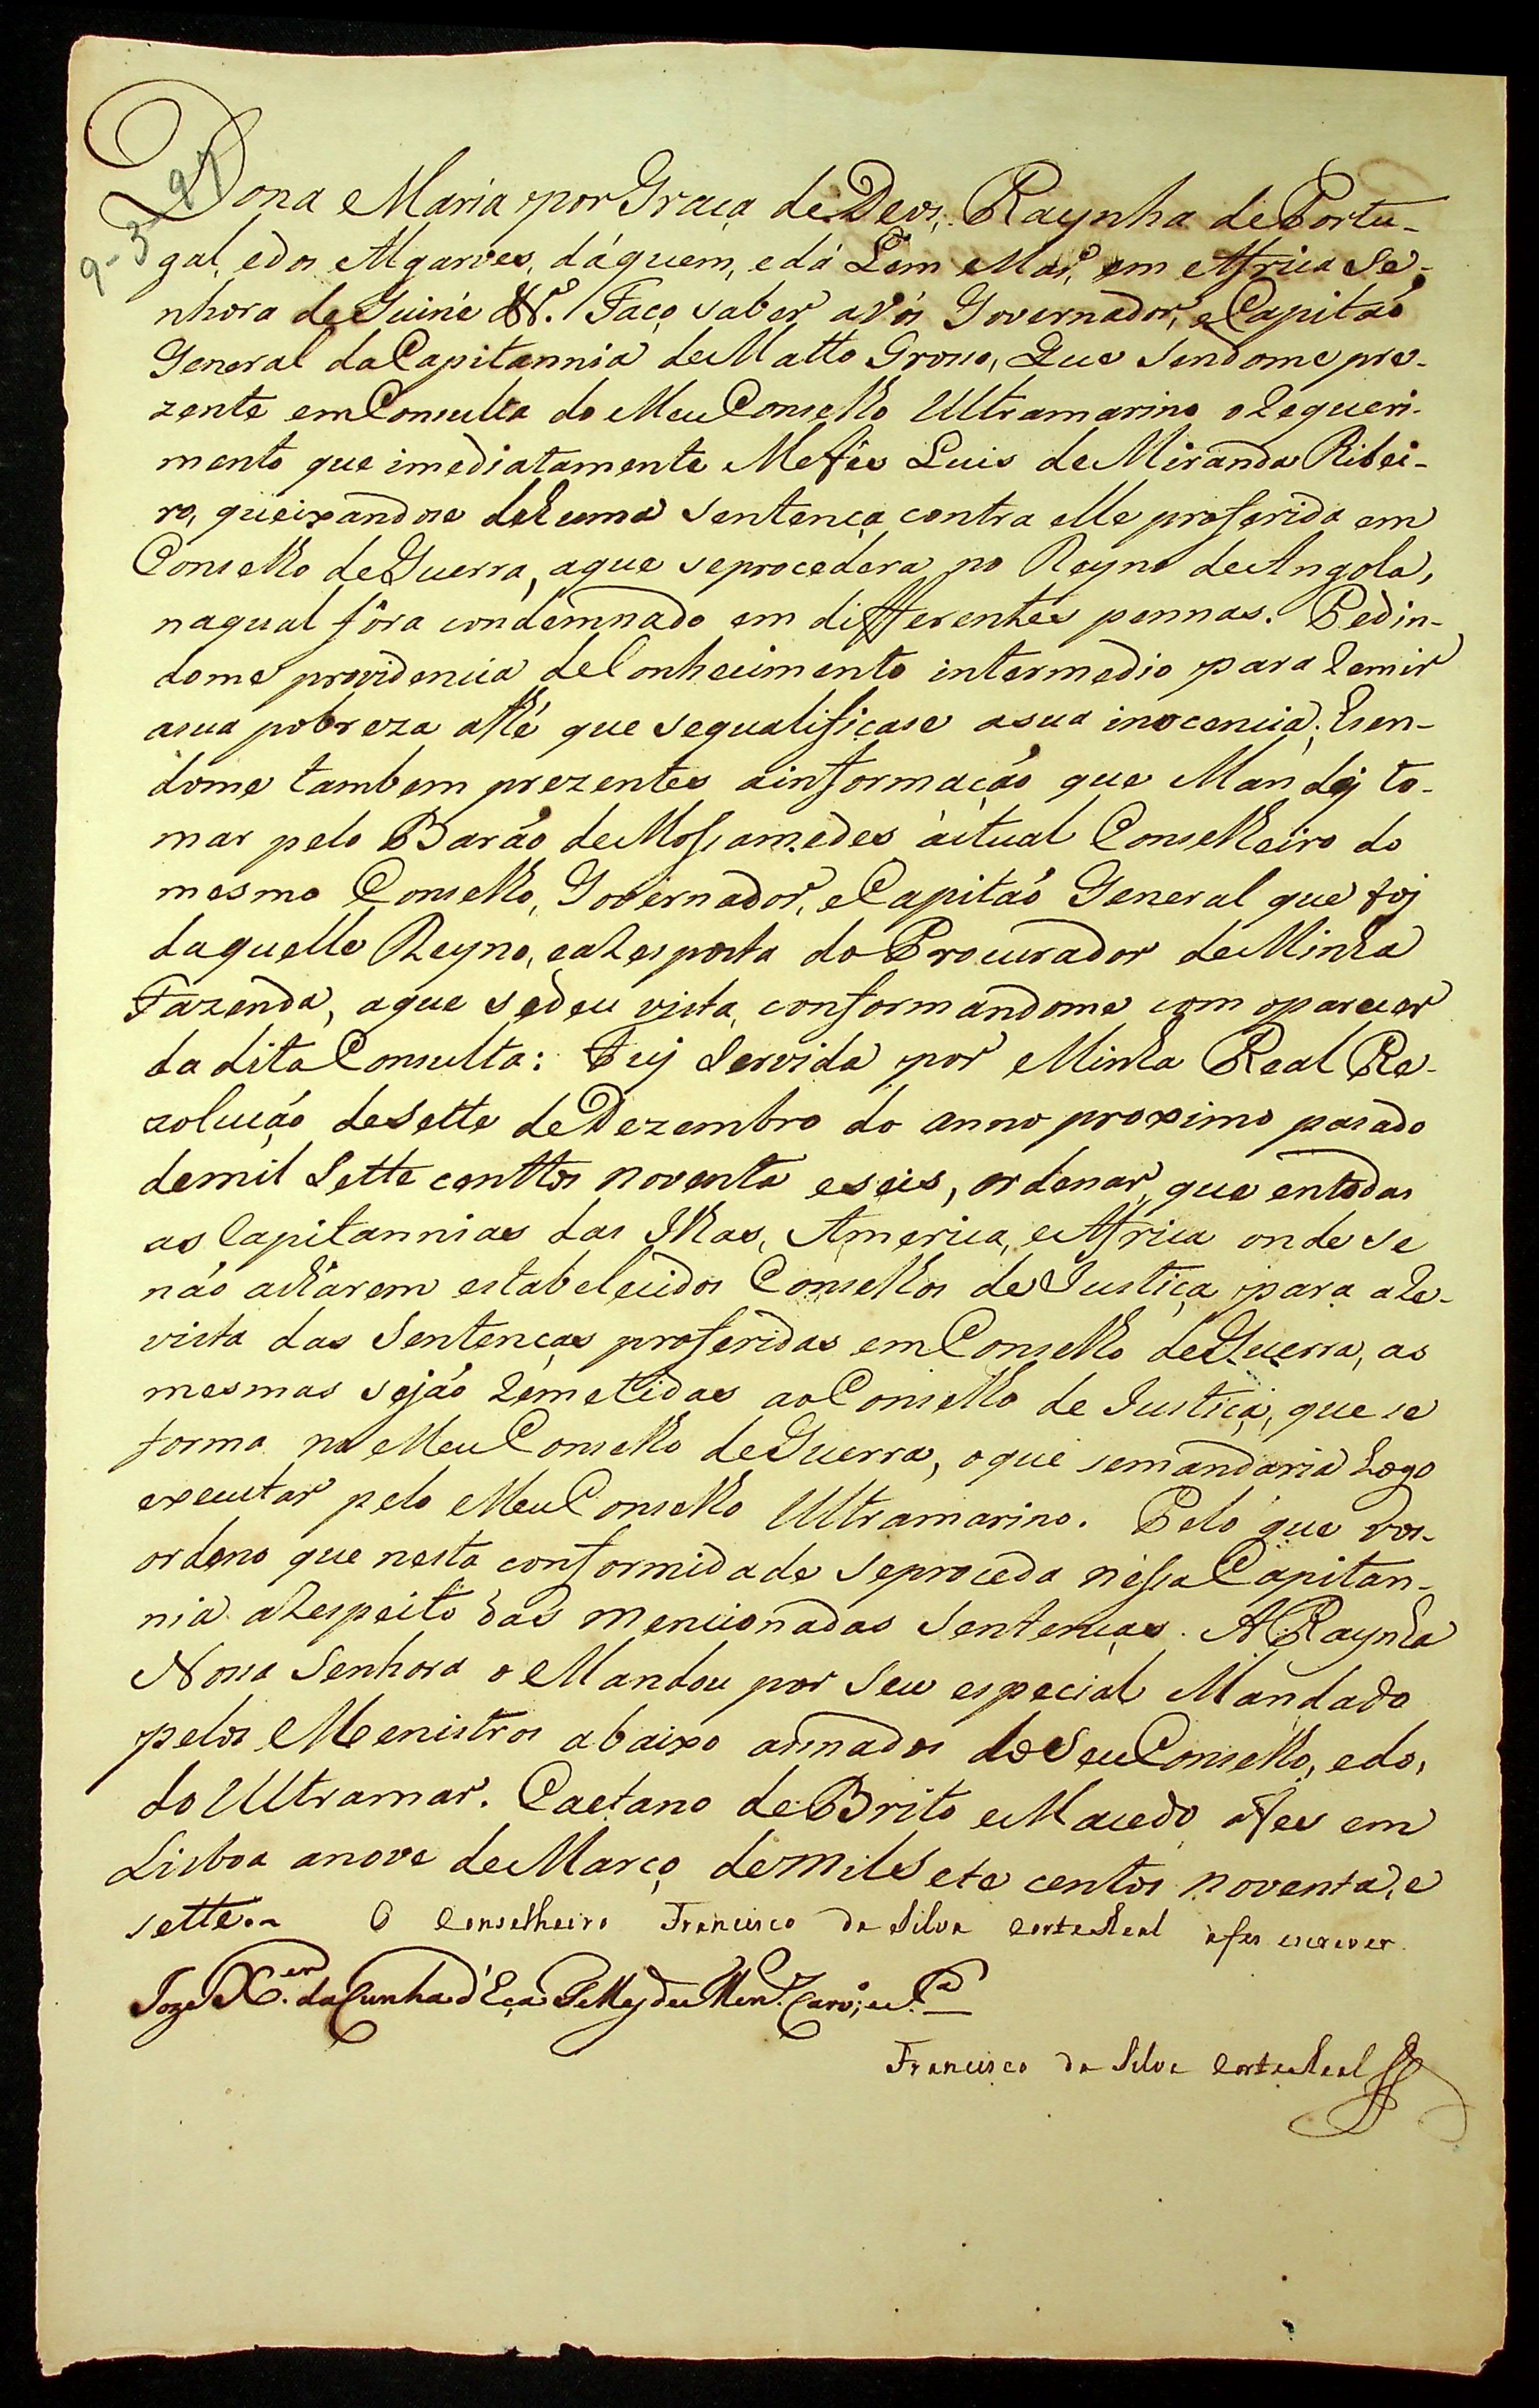 9-3-97
Dona Maria por Graça de Deos, Raynha de Portu-
gal, edos Algarves, dáquem, edá Lem Mar, em Africa Se-
nhora de Guiné &ª. Faço saber avós Governador, eCapitaõ
General daCapitannia deMatto Groso, Que sendome pre-
zente emConsulta do MeuConselho Ultramarino oRequeri-
mento que imediatamente Mefes Luis deMiranda Ribei-
ro, queixandose dehuma sentença contra elle proferida em
Conselho deGuerra, aque seprocedera no Reyno deAngola,
naqual fôra condemnado em differentes pennas. Pedin-
dome providencia deConhecimento intermedio para Remir
asua pobreza athé que sequalificase asua inocencia; Esen-
dome tambem prezentes ainformação que Mandej to-
mar pelo Barão deMossamedes áctual Conselheiro do
mesmo Conselho, Governador, eCapitaõ General que foj
daquelle Reyno, eaResposta doProcurador deMinha
Fazenda, aque sedeu vista, conformandome com oparecer
da ditaConsulta: Fuj Servida por Minha Real Re-
zolução desette deDezembro do anno proximo pasado
demil Sette centtos noventa eseis, ordenar, que entodas
as Capitannias das Ilhas, America, eAfrica onde se
não achárem estabelecidos Conselhos deJustiça para aRe-
vista das Sentenças proferidas emConselho deGuerra, as
mesmas sejão Remetidas aoConselho de Justiça, que se
forma no MeuConselho deGuerra, oque semandaria Logo
executar pelo MeuConselho Ultramarino. Pelo que vos-
ordeno que nesta conformidade seproceda néssaCapitan-
nia aRespeito das mencionadas Sentenças. ARaynha
Nosa Senhora o Mandou por Seu especial Mandado
pelos Menistros abaixo asinados doSeuConselho, edo,
do Ultramar. Caetano deBrito eMacedo afes em
Lisboa anove deMarço demilSete centos noventa, e
sette.~ O Conselheiro Francisco da Silva CorteReal afes escrever.
Joze X.er daCunha d'Eça
Francisco da Silva CorteReal